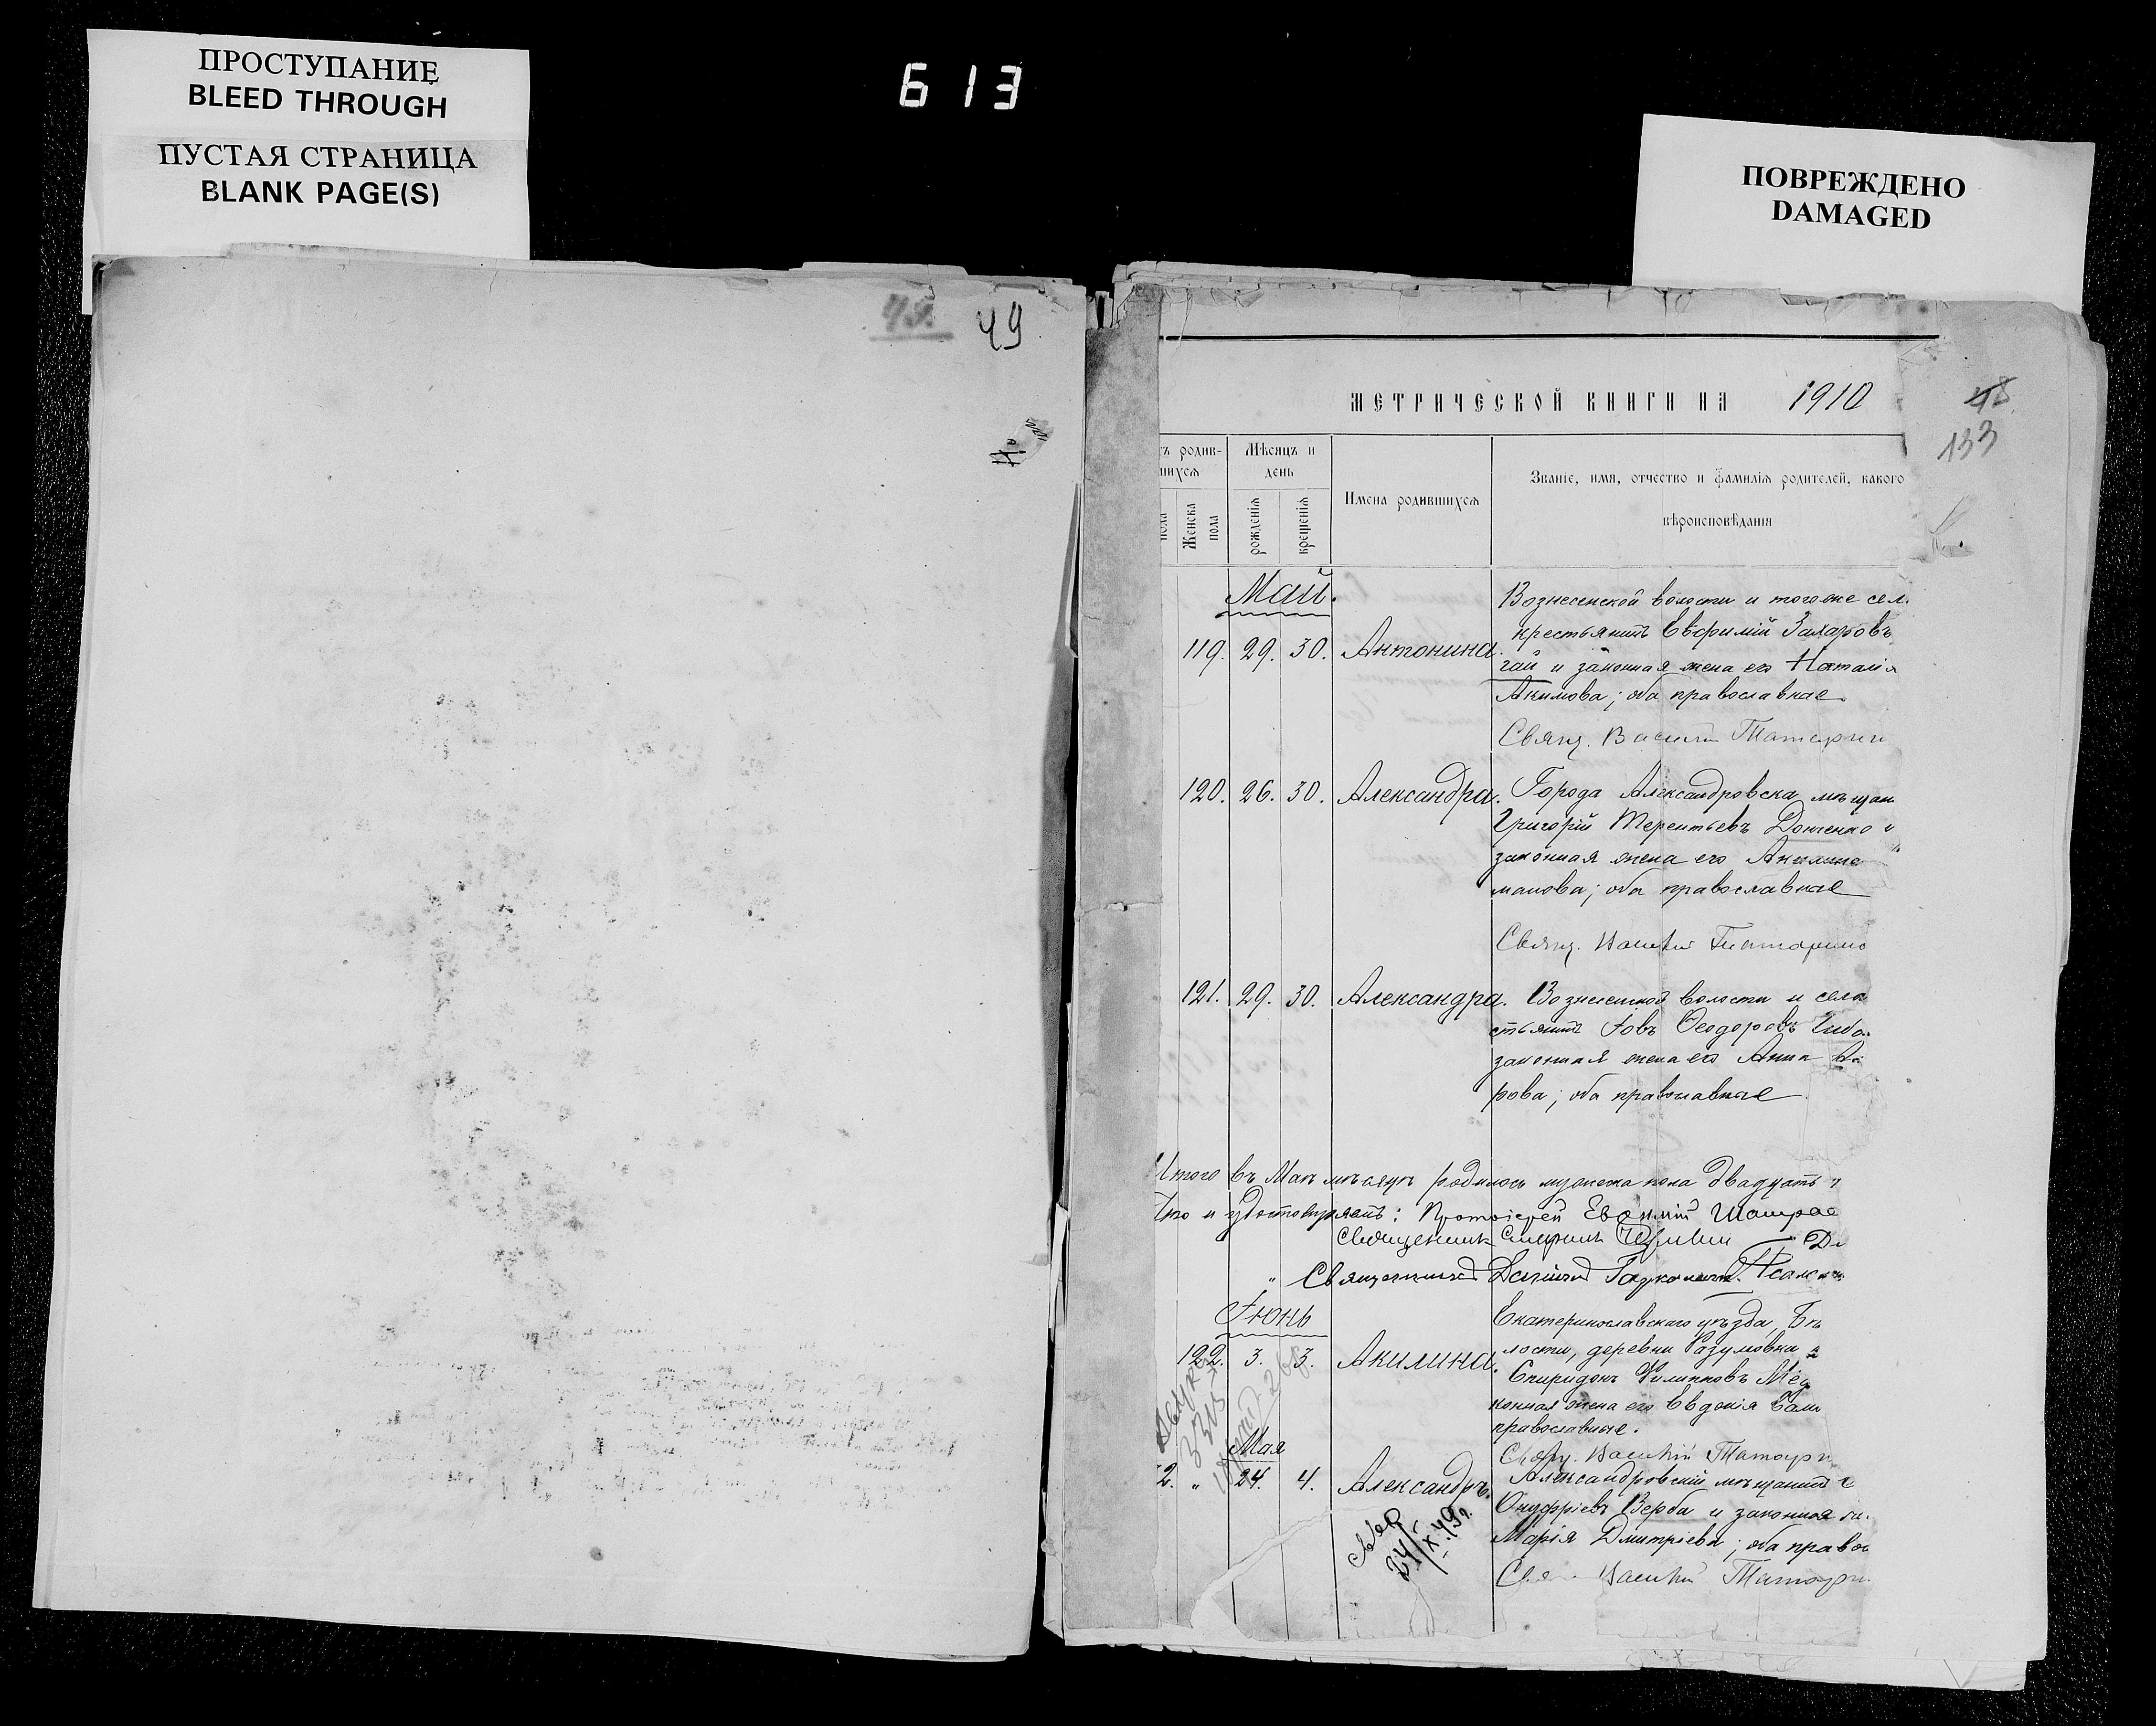 ПРОСТУПАНИЕ
BLEED THROUGH
ПУСТАЯ СТРАНИЦА
BLANK PAGE(S)
613
ПОВРЕЖДЕНО
DAMAGED
49. 49
МЕТРИЧЕСКОЙ КНИГИ НА 1910
48
133
ъ родив-
шихся
Мѣсяцъ и
день
Имена родившихся
Званіе, имя, отчество и фамилія родителей, какого
вѣроисповѣданія
пола
Женска
пола
рожденія
крещенія
Май.
119. 29. 30. Антонина.
Вознесенской волости и того же сел
крестьянинъ Евфимій Захаровъ
гай и законная жена его Наталія
Акимова; оба православные
Свящ. Василій Татарин
120. 26. 30. Александра.
Города Александровска мѣщан
Григорій Терентьевъ Донченко и
законная жена его Акилина
манова; оба православные
Свящ. Василій Татарино
121. 29. 30. Александра.
Вознесенской волости и села
стьянинъ Іовъ Ѳеодоровъ
законная жена его Анна
рова; оба православные
Итого въ Маѣ мѣсяцѣ родилось мужеска пола двадцать
Что и удостовѣряетъ: Протоіерей Евѳимій
Священникъ
" Священникъ
Іюнь
122. 3. 3. Акилина.
Екатеринославскаго уѣзда,
лости, деревни Разумовки
Спиридонъ Филипповъ
конная жена его Евдокія
православные.
Свящ. Василій Татари
Мая
2. " 24. 4. Александръ.
Александровскій мѣщанинъ
Онуфріевъ Верба и законная
Марія Дмитріева; оба правос
Василій Татари
24/X 49г.